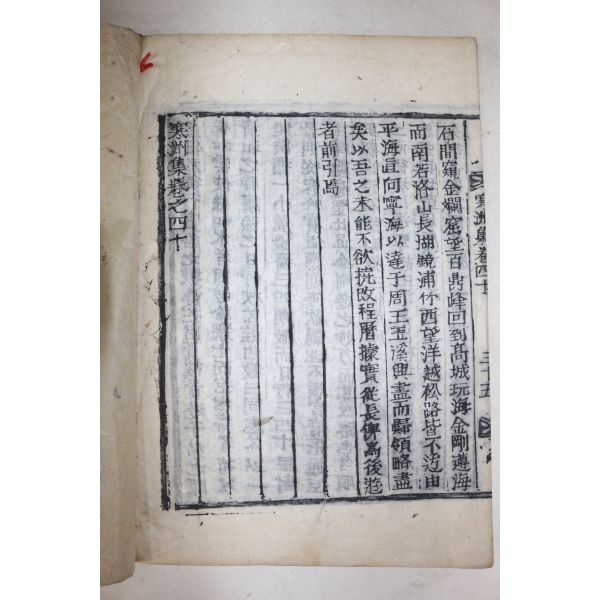 寒洲集卷四十 三十五
石間窺金襴窟望百鼎峰回到高城玩海金剛遵海
而南若洛山長湖鏡浦竹西望洋越松路皆不迂由
平海直向寧海以達于周王玉溪興盡而歸領略盡
矣以吾之未能不欲撓改程曆據實從長俾爲後遊
者前引焉
寒洲集卷之四十